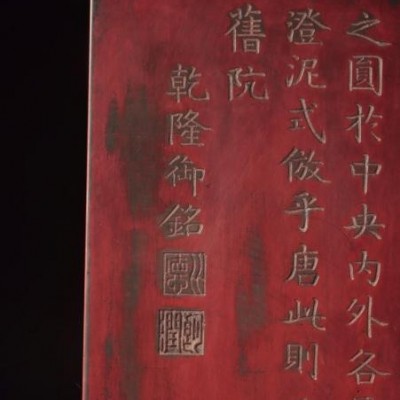 之圓於中央内外各
澄泥式倣乎唐此則
舊阬
乾隆御銘